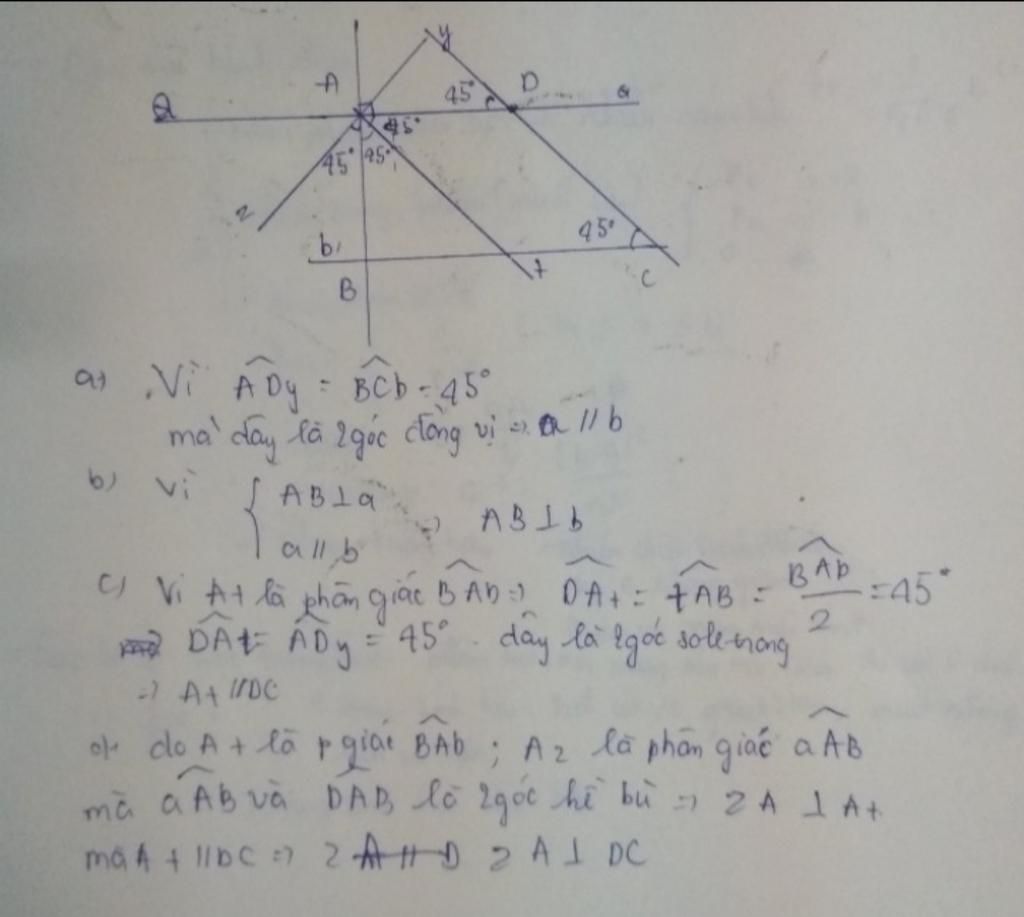 y
A
D
a
a
45°
45°
45° 45°
z
45°
b
t
B
C
a) Vì \widehat{ADy} = \widehat{BCb} = 45°
mà đây là 2 góc đồng vị => a // b
b) Vì { AB ⊥ a
a // b => AB ⊥ b
c) Vì At là phân giác \widehat{BAD} => \widehat{DAt} = \widehat{tAB} = \widehat{BAD}/2 = 45°
\widehat{DAt} = \widehat{ADy} = 45° . đây là 2 góc sole trong
=> At // DC
do At là p giác \widehat{BAD} ; Az là phân giác \widehat{aAB}
mà \widehat{aAB} và \widehat{DAB} là 2 góc kề bù => zA ⊥ At
mà At // DC => zA ⊥ DC